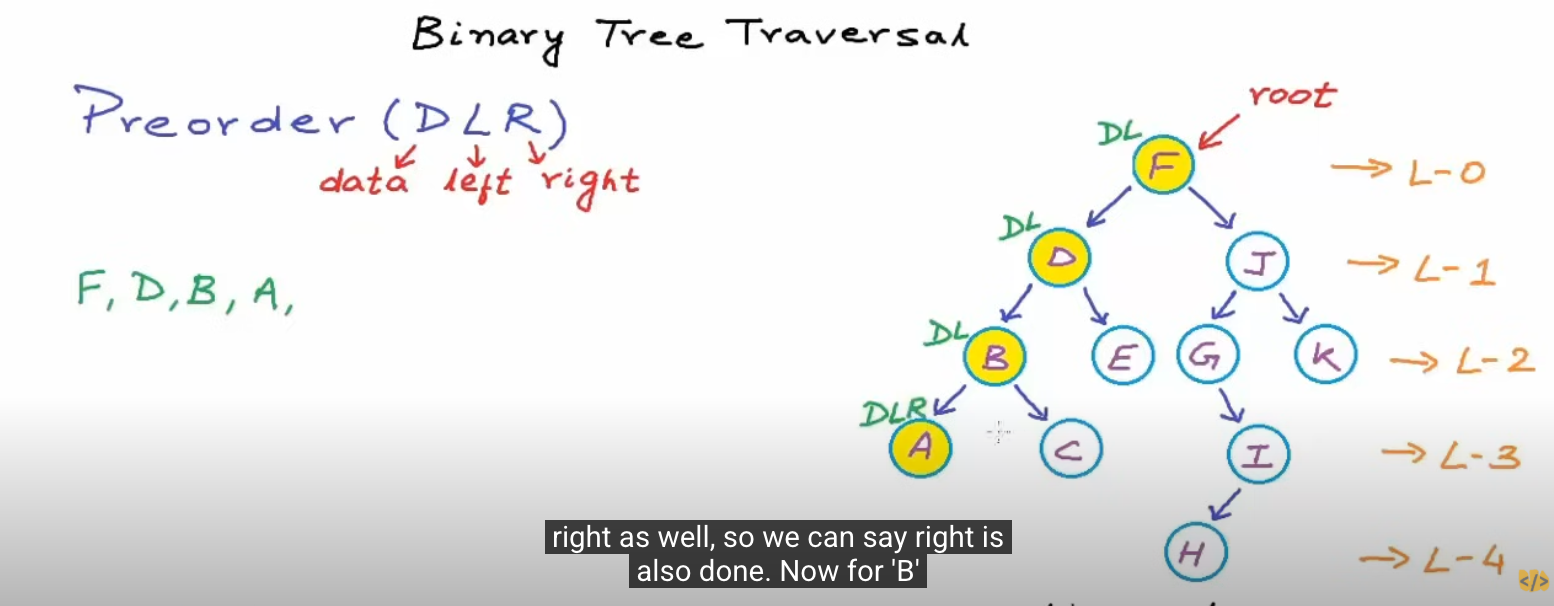 Binary Tree Traversal
Preorder (DLR)
data left right
F, D, B, A,
root
DL
F
→ L-0
DL
D
J
→ L-1
DL
B
E
G
K
→ L-2
DLR
A
C
I
→ L-3
H
→ L-4
right as well, so we can say right is
also done. Now for 'B'
</>